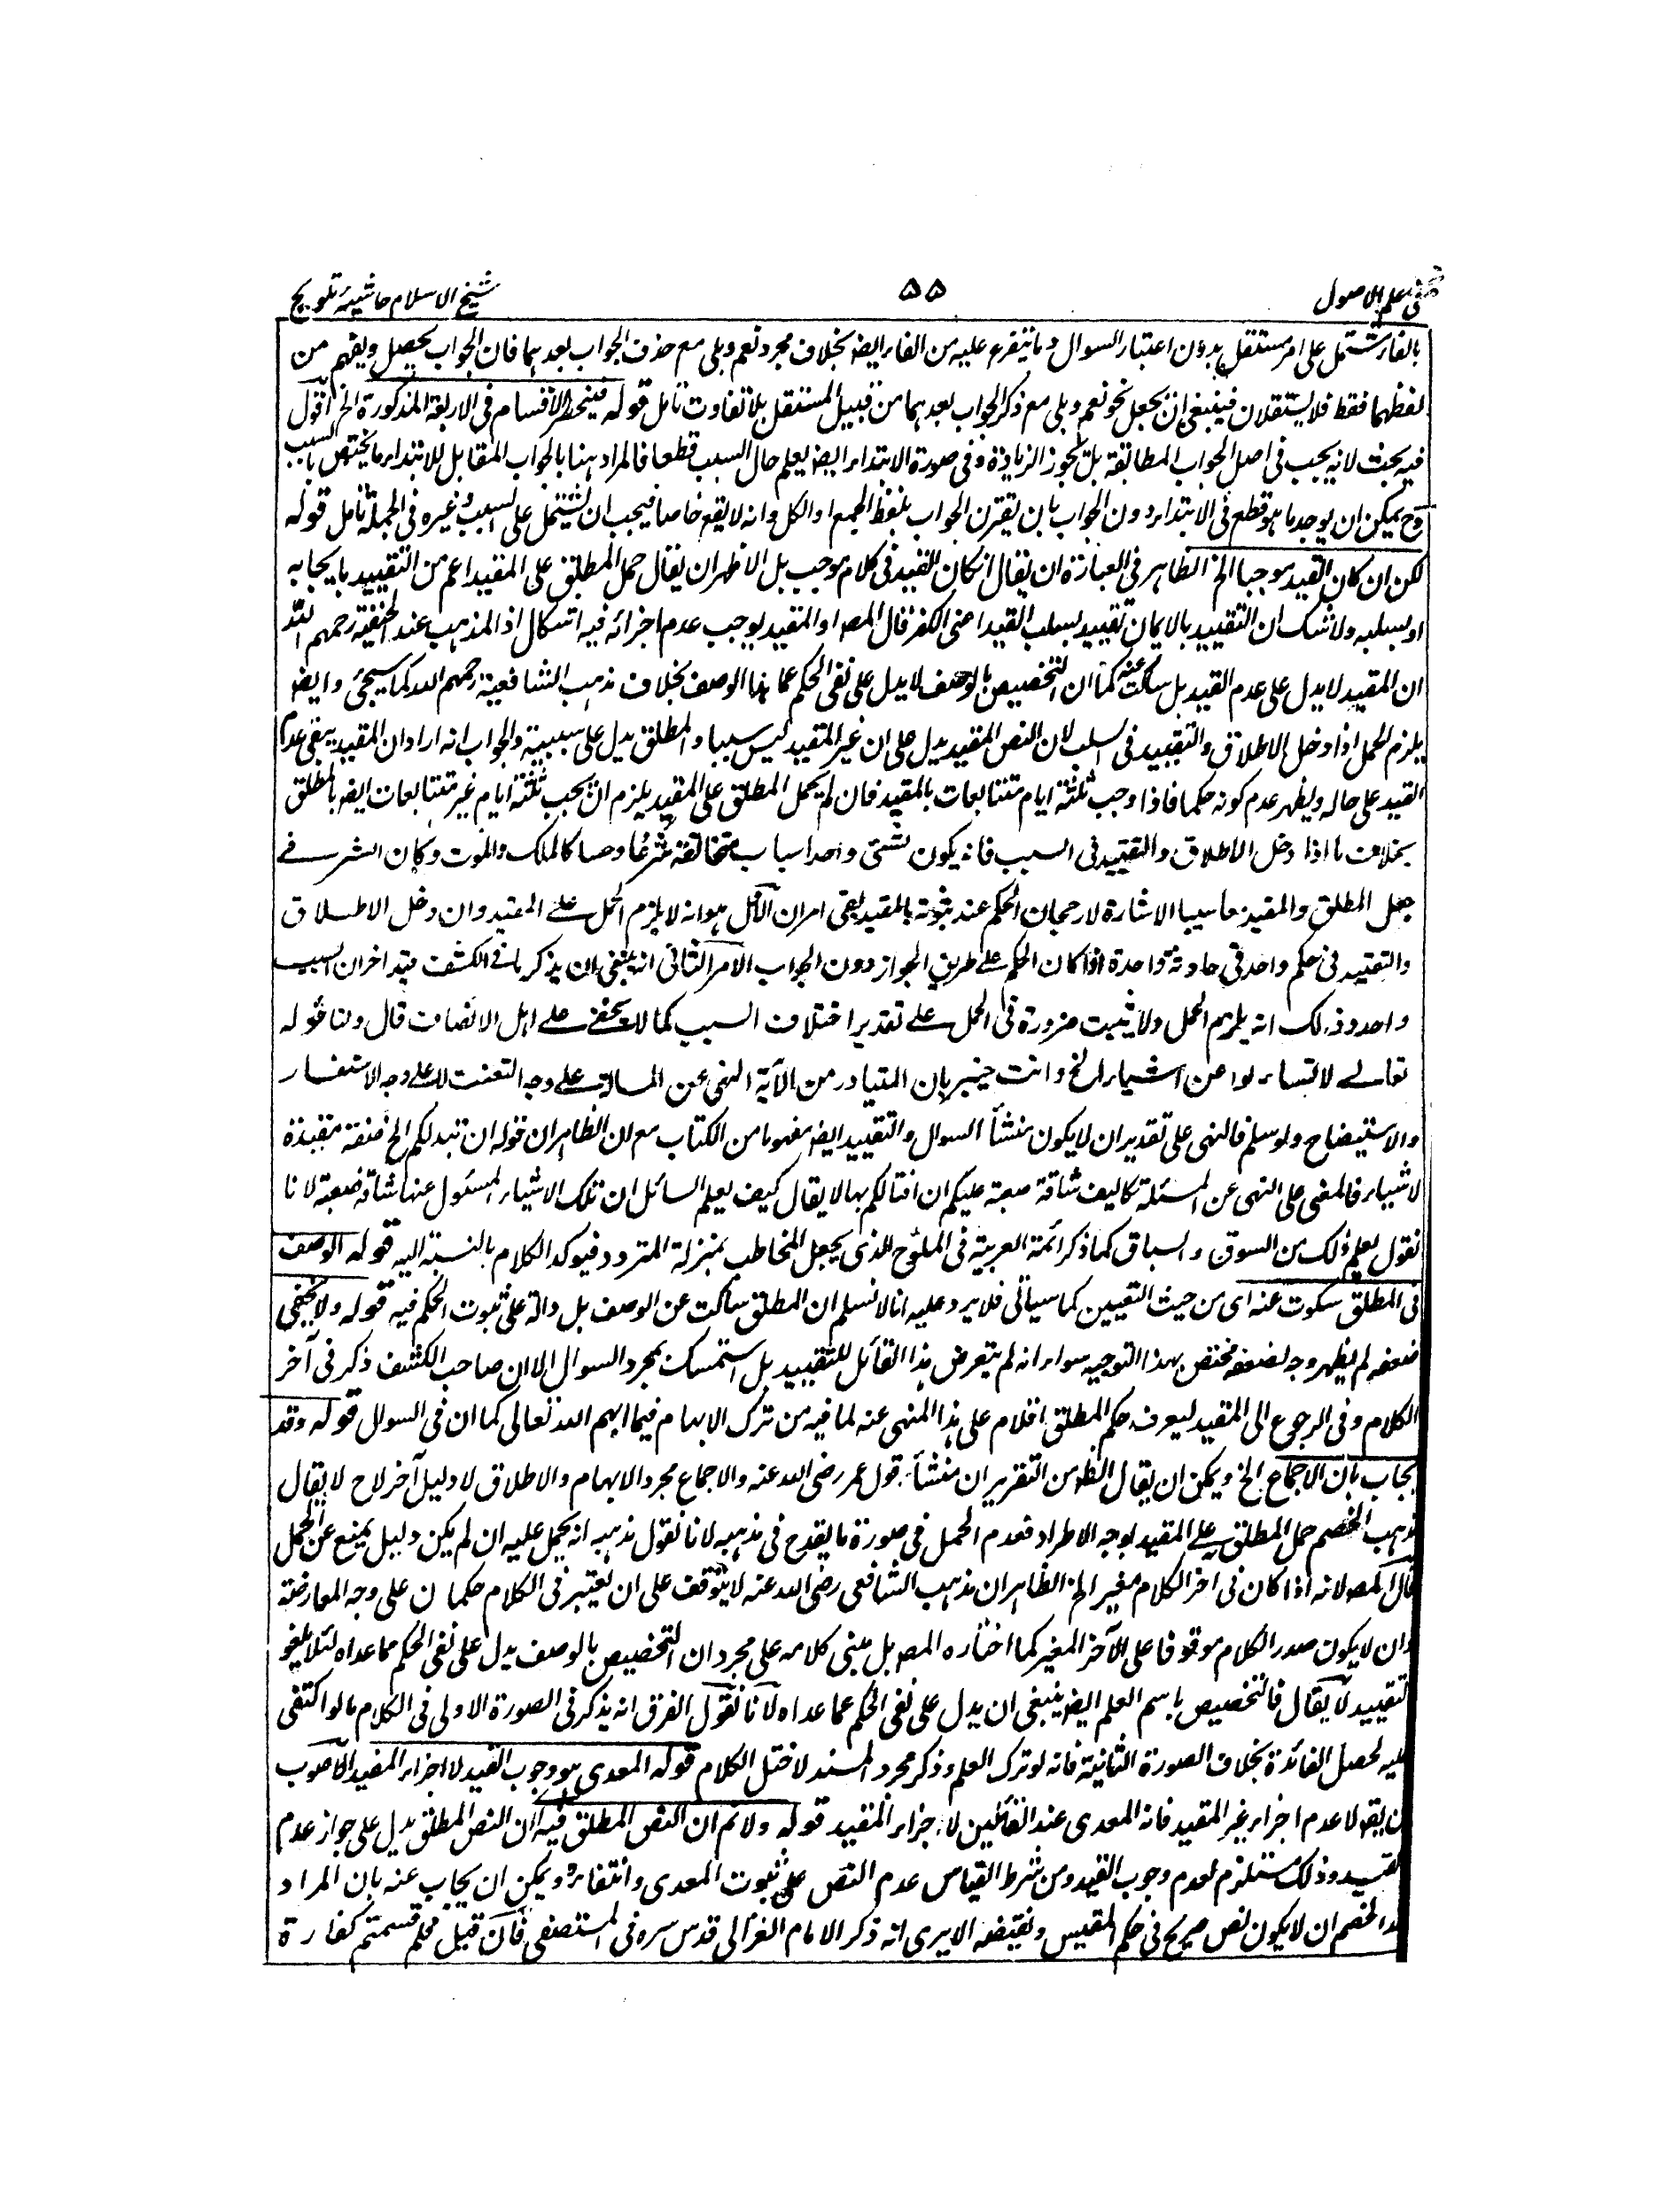 في علم الاصول
۵۵
شيخ الاسلام حاشية تلويح
بالفاء مشتمل على امر مستقل بدون اعتبار السوال وما يتفرع عليه من الفاء ايضا بخلاف مجرد نعم وبلى مع حذف الجواب بعدهما فان الجواب يحصل ويفهم من
لفظهما فقط فلا يستقلان فينبغي ان يجعل نحو نعم وبلى مع ذكر الجواب بعدهما من قبيل المستقل بلا تفاوت تامل قوله فينحصر الاقسام في الاربعة المذكورة الخ اقول
فيه بحث لانه يجب في اصل الجواب المطابقة بل تجوز الزيادة وفي صورة الابتداء ايضا يعلم حال السبب قطعا فالمراد هنا بالجواب المقابل للابتداء ما يختص بالسبب
وح يمكن ان يوجد ما هو قطع في الابتداء دون الجواب بان يقترن الجواب بلفظ الجمع او الكل وانه لا يقع خاصا فيجب ان يشتمل على السبب وغيره في الجملة تامل قوله
لكن ان كان القيد موجبا الخ الظاهر في العبارة ان يقال ان كان للقيد في كلام موجب بل الاظهر ان يقال حمل المطلق على المقيد اعم من التقييد بايجابه
او بسلبه ولا شك ان التقييد بالايمان تقييد بسلب القيد اعني الكفر قال المصـ او المقيد يوجب عدم اجزائه فيه اشكال اذ المذهب عند الحنفية رحمهم الله
ان المقيد لا يدل على عدم القيد بل ساكت عنه كما ان التخصيص بالوصف لا يدل على نفي الحكم عما هذا الوصف بخلاف مذهب الشافعية رحمهم الله كما سيجئ وايضا
يلزم الحمل اذا دخل الاطلاق والتقييد في السبب لان النص المقيد يدل على ان غير المقيد ليس سببا والمطلق يدل على سببيته والجواب انه اراد ان المقيد يبقى عدم
القيد على حاله ويظهر عدم كونه حكما فاذا وجب ثلثة ايام متتابعات بالمقيد فان لم يحمل المطلق على المقيد يلزم ان يجب ثلثة ايام غير متتابعات ايضا بالمطلق
بخلاف ما اذا دخل الاطلاق والتقييد في السبب فانه يكون لشئ واحد اسباب متخالفة شرعا وحسا كالملك والموت وكان السر في
جعل المطلق والمقيد ما سيبا الاشارة لا رجحان الحكم عند ثبوته بالمقيد بقي امران الاول هو انه لا يلزم الحمل على المقيد وان دخل الاطلاق
والتقييد في حكم واحد في حادثة واحدة اذا كان الحكم على طريق الجواز دون الوجوب الامر الثاني انه ينبغي ان يذكر ما في الكشف قيد اخر ان السبب
واحد وذلك انه يلزم الحمل ولا يثبت ضرورة في الحمل على تقدير اختلاف السبب كما لا يخفى على اهل الانصاف قال ولنا قوله
تعالى لا تسالوا عن اشياء الخ وانت خبير بان المتبادر من الآية النهي عن المسالة على وجه التعنت لا على وجه الاستفسار
والاستيضاح ولو سلم فالنهي على تقدير ان لا يكون منشأ السوال والتقييد ايضا مفهوما من الكتاب مع ان الظاهر ان قوله ان تبد لكم الخ صفة مقيدة
لاشياء فالمعنى على النهي عن المسئلة تكاليف شاقة صعبة عليكم ان افتالكم بها لا يقال كيف يعلم السائل ان تلك الاشياء المسئول عنها شاقة صعبة لانا
نقول يعلم ذلك من السوق والسباق كما ذكر ائمة العربية في الملوح الذي يجعل المخاطب بمنزلة المتردد فيوكد الكلام بالنسبة اليه قوله الوصف
في المطلق سكوت عنه اى من حيث التعيين كما سيأتي فلا يرد عليه انا لا نسلم ان المطلق ساكت عن الوصف بل دالة على ثبوت الحكم فيه قوله ولا يخفى
ضعفه لم يظهر وجه لضعفه مختص بهذا التوجيه سواء انه لم يتعرض هذا القائل للتقييد بل استمسك بمجرد السوال الا ان صاحب الكشف ذكر في آخر
الكلام وفي الرجوع الى المقيد ليعرف حكم المطلق اقدام على هذا المنهى عنه لما فيه من ترك الابهام فيما ابهم الله تعالى كما ان في السوال قوله وقد
يجاب بان الاجماع الخ ويمكن ان يقال الظ من التقرير ان منشأ قول عمر رضى الله عنه والاجماع مجرد الابهام والاطلاق لا دليل آخر لاح لا يقال
مذهب الخصم حمل المطلق على المقيد بوجه الاطراد فعدم الحمل في صورة ما يقدح في مذهبه لانا نقول مذهبه انه يحمل عليه ان لم يكن دليل يمنع عن الحمل
قال المصـ لانه اذا كان في اخر الكلام مغير الخ الظاهر ان مذهب الشافعى رضى الله عنه لا يتوقف على ان يعتبر في الكلام حكمان على وجه المعارضة
وان لا يكون صدر الكلام موقوفا على الآخر المغير كما اختاره المصـ بل مبنى كلامه على مجرد ان التخصيص بالوصف يدل على نفى الحكم مما عداه لئلا يلغو
لتقييد لا يقال فالتخصيص باسم العلم ايضا ينبغى ان يدل على نفى الحكم عما عداه لانا نقول الفرق انه يذكر في الصورة الاولى في الكلام ما لو اكتفى
عليه لحصل الفائدة بخلاف الصورة الثانية فانه لو ترك العلم وذكر مجرد المسند لاختل الكلام قوله المعدى هو وجوب القيد لا اجزاء المقيد الاصوب
ن يقول لا عدم اجزاء غير المقيد فانه المعدى عند القائلين لا اجزاء المقيد قوله ولا ثم ان النص المطلق فيه ان النص المطلق يدل على جواز عدم
لقيد وذلك مستلزم لعدم وجوب القيد ومن شرط القياس عدم النص على ثبوت المعدى وانتفائه ويمكن ان يجاب عنه بان المراد
الخصم ان لا يكون نص صريح في حكم المقيس ونقيضه الا يرى انه ذكر الامام الغزالى قدس سره في المستصفى فان قيل فلم قسمتم كفارة